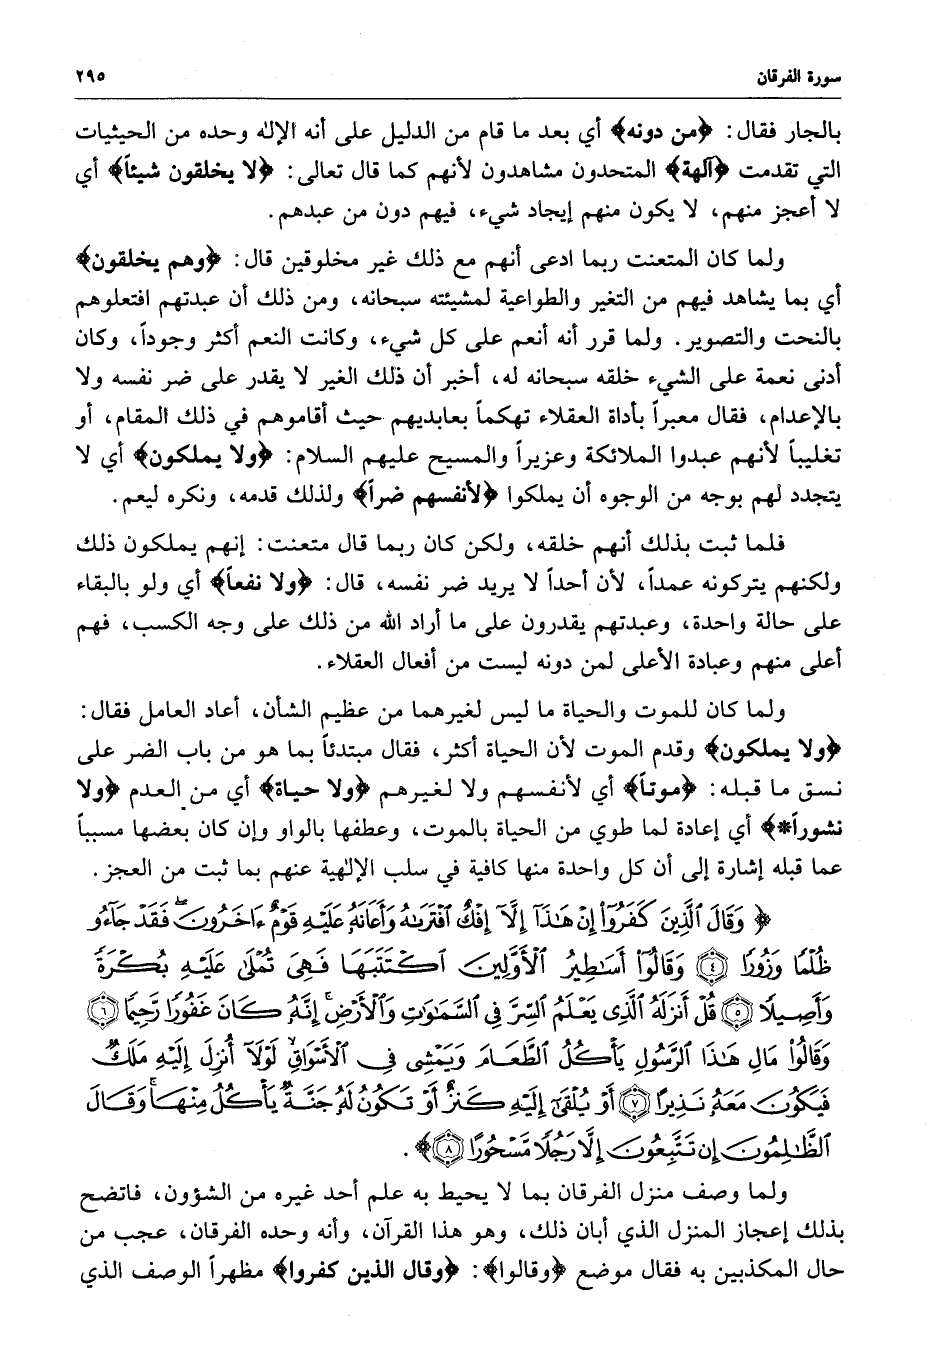 سورة الفرقان ٢٩٥
بالجار فقال: ﴿من دونه﴾ أي بعد ما قام من الدليل على أنه الإله وحده من الحيثيات
التي تقدمت ﴿آلهة﴾ المتحدون مشاهدون لأنهم كما قال تعالى: ﴿لا يخلقون شيئاً﴾ أي
لا أعجز منهم، لا يكون منهم إيجاد شيء، فهم دون من عبدهم.
ولما كان المتعنت ربما ادعى أنهم مع ذلك غير مخلوقين قال: ﴿وهم يخلقون﴾
أي بما يشاهد فيهم من التغير والطواعية لمشيئته سبحانه، ومن ذلك أن عبدتهم افتعلوهم
بالنحت والتصوير. ولما قرر أنه أنعم على كل شيء، وكانت النعم أكثر وجوداً، وكان
أدنى نعمة على الشيء خلقه سبحانه له، أخبر أن ذلك الغير لا يقدر على ضر نفسه ولا
بالإعدام، فقال معبراً بأداة العقلاء تهكماً بعابديهم حيث أقاموهم في ذلك المقام، أو
تغليباً لأنهم عبدوا الملائكة وعزيراً والمسيح عليهم السلام: ﴿ولا يملكون﴾ أي لا
يتجدد لهم بوجه من الوجوه أن يملكوا ﴿لأنفسهم ضراً﴾ ولذلك قدمه، ونكره ليعم.
فلما ثبت بذلك أنهم خلقه، ولكن كان ربما قال متعنت: إنهم يملكون ذلك
ولكنهم يتركونه عمداً، لأن أحداً لا يريد ضر نفسه، قال: ﴿ولا نفعاً﴾ أي ولو بالبقاء
على حالة واحدة، وعبدتهم يقدرون على ما أراد الله من ذلك على وجه الكسب، فهم
أعلى منهم وعبادة الأعلى لمن دونه ليست من أفعال العقلاء.
ولما كان للموت والحياة ما ليس لغيرهما من عظيم الشأن، أعاد العامل فقال:
﴿ولا يملكون﴾ وقدم الموت لأن الحياة أكثر، فقال مبتدئاً بما هو من باب الضر على
نسق ما قبله: ﴿موتاً﴾ أي لأنفسهم ولا لغيرهم ﴿ولا حياة﴾ أي من العدم ﴿ولا
نشوراً*﴾ أي إعادة لما طوي من الحياة بالموت، وعطفها بالواو وإن كان بعضها مسبباً
عما قبله إشارة إلى أن كل واحدة منها كافية في سلب الإلهية عنهم بما ثبت من العجز.
﴿ وَقَالَ ٱلَّذِينَ كَفَرُوٓاْ إِنْ هَٰذَآ إِلَّآ إِفْكٌ ٱفْتَرَىٰهُ وَأَعَانَهُۥ عَلَيْهِ قَوْمٌ ءَاخَرُونَۖ فَقَدْ جَآءُو
ظُلْمًا وَزُورًا ﴿٤﴾ وَقَالُوٓاْ أَسَٰطِيرُ ٱلْأَوَّلِينَ ٱكْتَتَبَهَا فَهِىَ تُمْلَىٰ عَلَيْهِ بُكْرَةً
وَأَصِيلًا ﴿٥﴾ قُلْ أَنزَلَهُ ٱلَّذِى يَعْلَمُ ٱلسِّرَّ فِى ٱلسَّمَٰوَٰتِ وَٱلْأَرْضِۚ إِنَّهُۥ كَانَ غَفُورًا رَّحِيمًا ﴿٦﴾
وَقَالُواْ مَالِ هَٰذَا ٱلرَّسُولِ يَأْكُلُ ٱلطَّعَامَ وَيَمْشِى فِى ٱلْأَسْوَاقِۙ لَوْلَآ أُنزِلَ إِلَيْهِ مَلَكٌ
فَيَكُونَ مَعَهُۥ نَذِيرًا ﴿٧﴾ أَوْ يُلْقَىٰٓ إِلَيْهِ كَنزٌ أَوْ تَكُونُ لَهُۥ جَنَّةٌ يَأْكُلُ مِنْهَاۚ وَقَالَ
ٱلظَّٰلِمُونَ إِن تَتَّبِعُونَ إِلَّا رَجُلًا مَّسْحُورًا ﴿٨﴾ ﴾.
ولما وصف منزل الفرقان بما لا يحيط به علم أحد غيره من الشؤون، فاتضح
بذلك إعجاز المنزل الذي أبان ذلك، وهو هذا القرآن، وأنه وحده الفرقان، عجب من
حال المكذبين به فقال موضع ﴿وقالوا﴾: ﴿وقال الذين كفروا﴾ مظهراً الوصف الذي